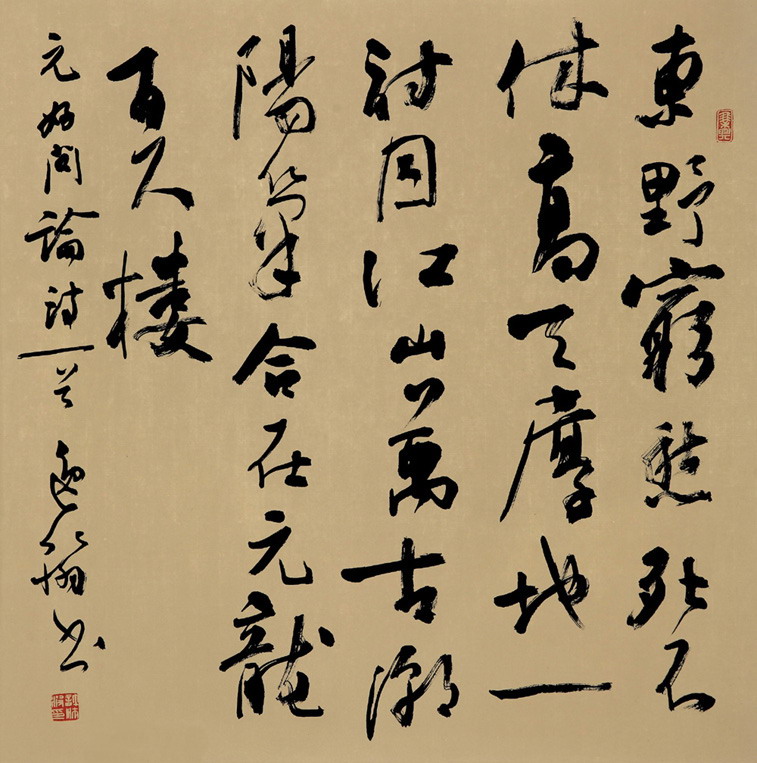 東野窮愁死不
休高天厚地一
詩囚江山萬古潮
陽筆合在元龍
百尺樓
元好問論詩一首 書